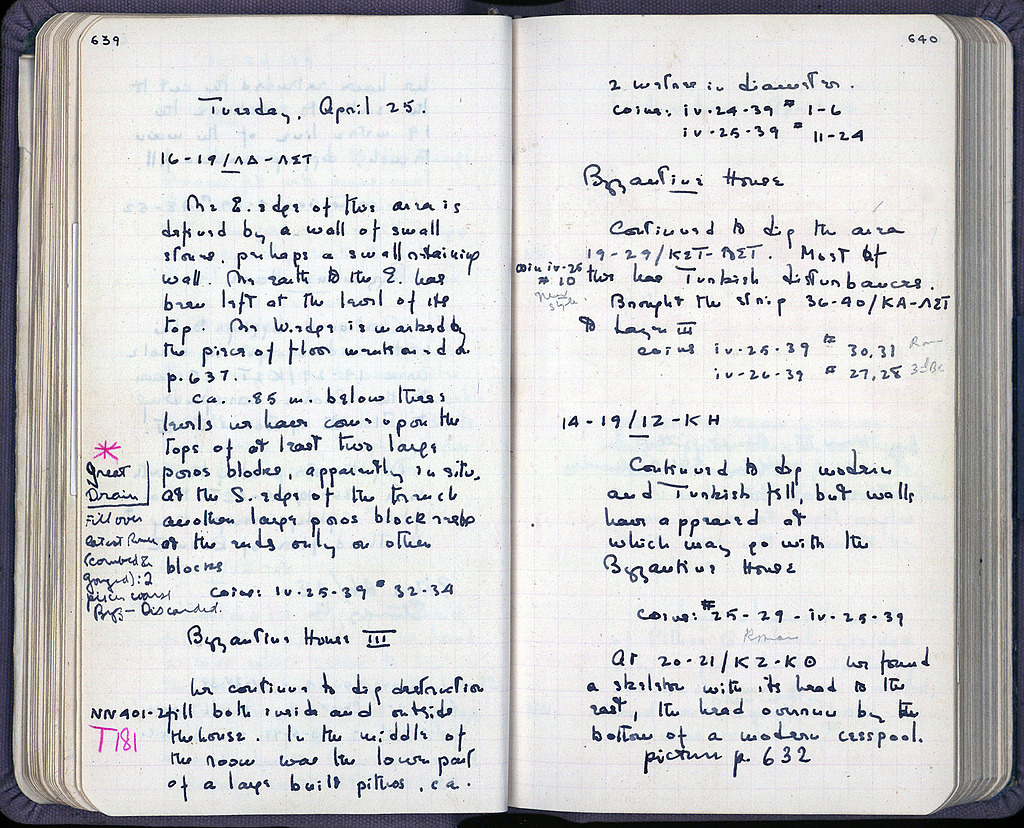 639
Tuesday, April 25.
16-19/ΛΔ-ΛΣΤ
The E. edge of this area is
defined by a wall of small
stones, perhaps a small retaining
wall. The earth to the E. has
been left at the level of its
top. The W. edge is marked by
the piece of floor mentioned on
p. 637.
ca. .85 m. below these
levels we have come upon the
tops of at least two large
poros blocks, apparently in situ.
At the S. edge of the trench
another large poros block rests
at the ends only on other
blocks
*
Great
Drain
Fill over
latest Roman
(combed &
gouged): 2
pieces worst
Byz – Discarded.
coins: iv-25-39 # 32-34
Byzantine House III
We continue to dig destruction
NN 401-2
fill both inside and outside
T181
the house. In the middle of
the room was the lower part
of a large built pithos, ca.
640
2 metres in diameter.
coins: iv-24-39 # 1-6
iv-25-39 # 11-24
Byzantine House
Continued to dig the area
19-29/ΚΣΤ-ΛΣΤ. Most of
coin iv-25
# 10
New
Style
this has Turkish disturbances.
Brought the strip 36-40/ΚΑ-ΛΣΤ
to Layer III
coins iv-25-39 # 30,31 Rom
iv-26-39 # 27,28 3rd BC
14-19/ΙΖ-ΚΗ
Continued to dig modern
and Turkish fill, but walls
have appeared at
which may go with the
Byzantine House
coins: # 25-29 - iv-25-39
Roman
At 20-21/ΚΖ-ΚΘ we found
a skeleton with its head to the
east, the head overrun by the
bottom of a modern cesspool.
picture p. 632